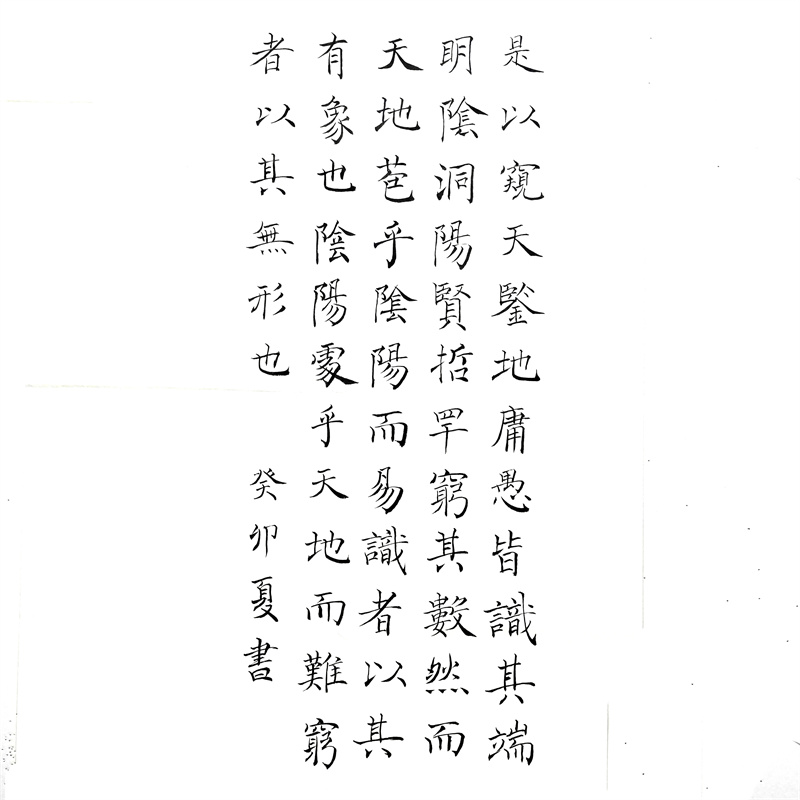 是以窺天鑒地庸愚皆識其端
明陰洞陽賢哲罕窮其數然而
天地苞乎陰陽而易識者以其
有象也陰陽處乎天地而難窮
者以其無形也
癸卯夏書